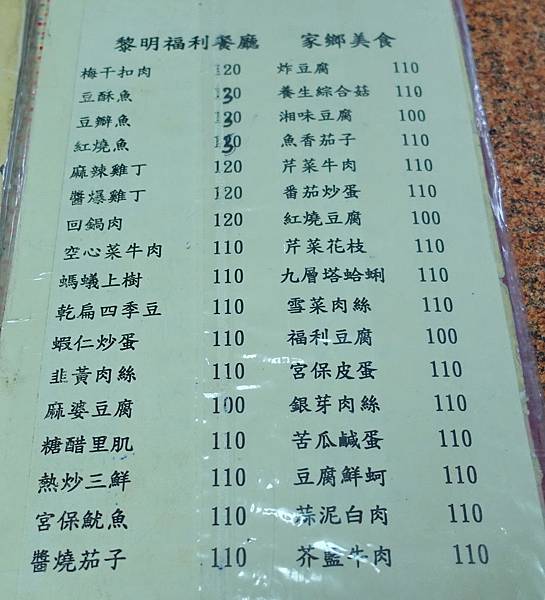 黎明福利餐廳 家鄉美食
梅干扣肉 120 炸豆腐 110
豆酥魚 130 養生綜合菇 110
豆瓣魚 130 湘味豆腐 100
紅燒魚 130 魚香茄子 110
麻辣雞丁 120 芹菜牛肉 110
醬爆雞丁 120 番茄炒蛋 110
回鍋肉 120 紅燒豆腐 100
空心菜牛肉 110 芹菜花枝 110
螞蟻上樹 110 九層塔蛤蜊 110
乾扁四季豆 110 雪菜肉絲 110
蝦仁炒蛋 110 福利豆腐 100
韭黃肉絲 110 宮保皮蛋 110
麻婆豆腐 100 銀芽肉絲 110
糖醋里肌 110 苦瓜鹹蛋 110
熱炒三鮮 110 豆腐鮮蚵 110
宮保魷魚 110 蒜泥白肉 110
醬燒茄子 110 芥藍牛肉 110